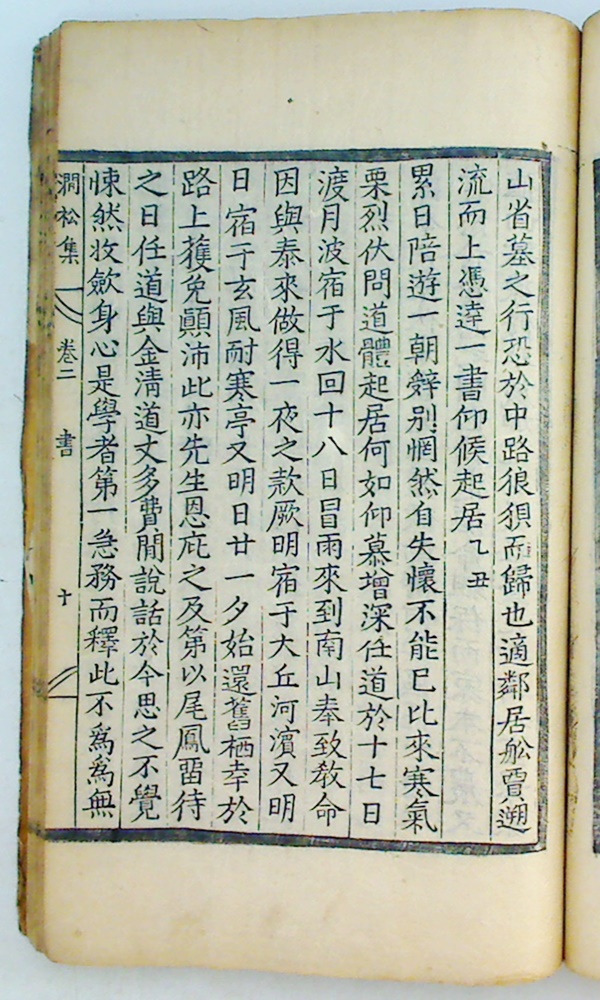 山省墓之行恐於中路狼狽而歸也適鄰居舩賈遡
流而上憑達一書仰候起居乙丑
累日陪遊一朝辤别惘然自失懷不能已比來寒氣
栗烈伏問道體起居何如仰慕增深任道於十七日
渡月波宿于水回十八日冒雨來到南山奉致敎命
因與泰來做得一夜之款厥明宿于大丘河濱又明
日宿于玄風耐寒亭又明日廿一夕始還舊栖幸於
路上獲免顚沛此亦先生恩庇之及第以尾鳳留待
之日任道與金淸道丈多費閒說話於今思之不覺
悚然收歛身心是學者第一急務而釋此不爲爲無
澗松集 卷二 書 十